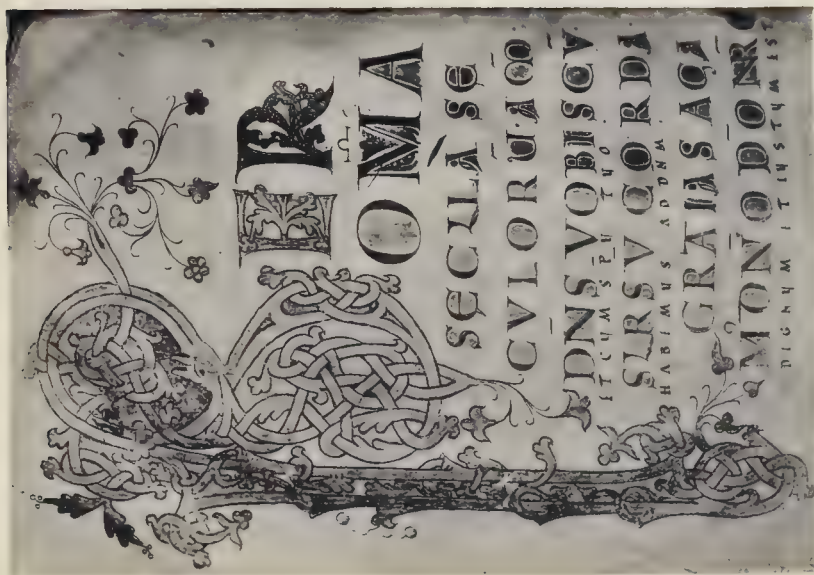 PER
OMA
SECULA SE
CVLORU
DNS VOBISCV
ET CVM SPU TUO
SURSV CORDA
HABEMUS AD DNM
GRATIAS AGA
DIGNUM ET IUSTUM EST